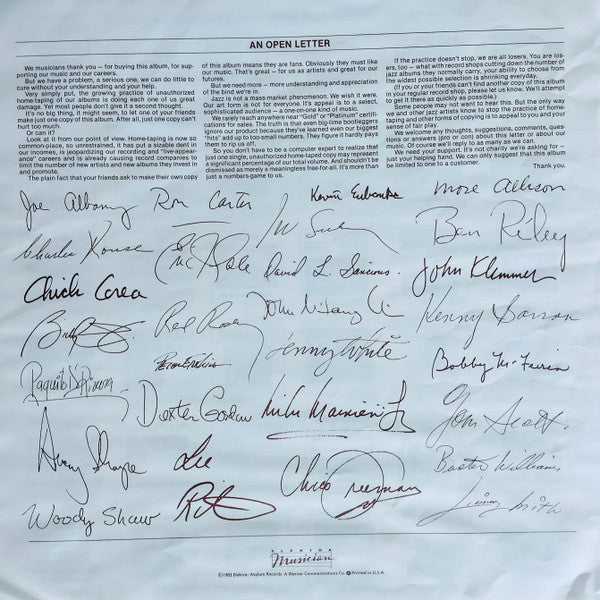 AN OPEN LETTER
We musicians thank you — for buying this album, for sup-
porting our music and our careers.
But we have a problem, a serious one, we can do little to
cure without your understanding and your help.
Very simply put, the growing practice of unauthorized
home-taping of our albums is doing each one of us great
damage. Yet most people don't give it a second thought.
It's no big thing, it might seem, to let one of your friends
make just one copy of this album. After all, just one copy can't
hurt too much.
Or can it?
Look at it from our point of view. Home-taping is now so
common-place, so unrestrained, it has put a sizable dent in
our incomes, is jeopardizing our recording and "live-appear-
ance" careers and is already causing record companies to
limit the number of new artists and new albums they invest in
and promote.
The plain fact that your friends ask to make their own copy
of this album means they are fans. Obviously they must like
our music. That's great — for us as artists and great for our
futures.
But we need more — more understanding and appreciation
of the bind we're in.
Jazz is not a mass market phenomenon. We wish it were.
Our art form is not for everyone. It's appeal is to a select,
sophisticated audience — a one-on-one kind of music.
We rarely reach anywhere near "Gold" or "Platinum" certifi-
cations of sales. The truth is that even big-time bootleggers
ignore our product because they've learned even our biggest
"hits" add up to too-small numbers. They figure it hardly pays
them to rip us off.
So you don't have to be a computer expert to realize that
just one single, unauthorized home-tape copy may represent
a significant percentage of our total volume. And shouldn't be
dismissed as merely a meaningless free-for-all. It's more than
just a numbers game to us.
If the practice doesn't stop, we are all losers. You are los-
ers, too — what with record shops cutting down the number of
jazz albums they normally carry, your ability to choose from
the widest possible selection is shrinking everyday.
(If you or your friends can't find another copy of this album
in your regular record shop, please let us know. We'll attempt
to get it as quickly as possible.)
Some people may not want to hear this. But the only way
we and other jazz artists know to stop the practice of home-
taping and other forms of copying is to appeal to you and your
sense of fair play.
We welcome any thoughts, suggestions, comments, ques-
tions or answers (pro or con) about this letter or about our
music. Of course we'll reply to as many as we can.
We need your support. It's not charity we're asking for —
just your helping hand. We can only suggest that this album
be limited to one to a customer.
Thank you.
Joe Albany Ron Carter Kevin Eubanks Mose Allison
Charles Rouse David L. Sancious Ben Riley
Chick Corea John Klemmer
Red Rodney Kenny Barron
Lenny White
Paquito D'Rivera Peter Erskine Bobby McFerrin
Dexter Gordon Mike Mainieri Jr Tom Scott
Avery Sharpe Lee Chico Freeman Buster Williams
Woody Shaw Rit Jimmy Smith
ELEKTRA
Musician
©1983 Elektra/Asylum Records A Warner Communications Co. Printed in U.S.A.